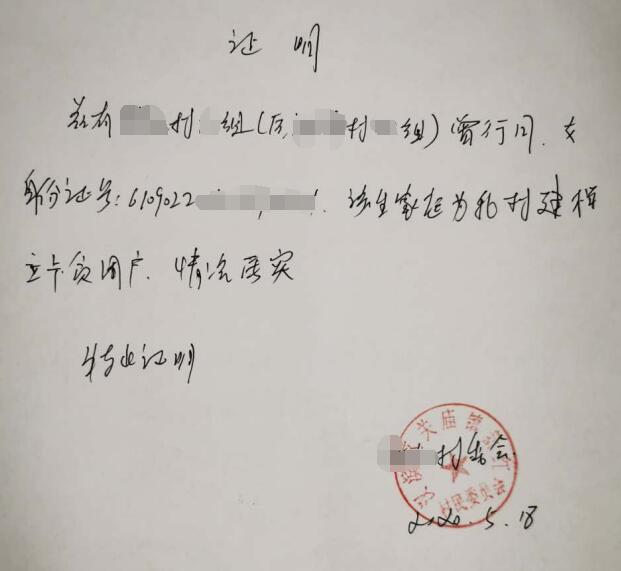 证明
兹有村组(原村组)曾行同、女
身份证号:6109022 、该生家庭为我村建档
立卡贫困户、情况属实
特此证明
关庙镇
村委会
村民委员会
2020.5.18